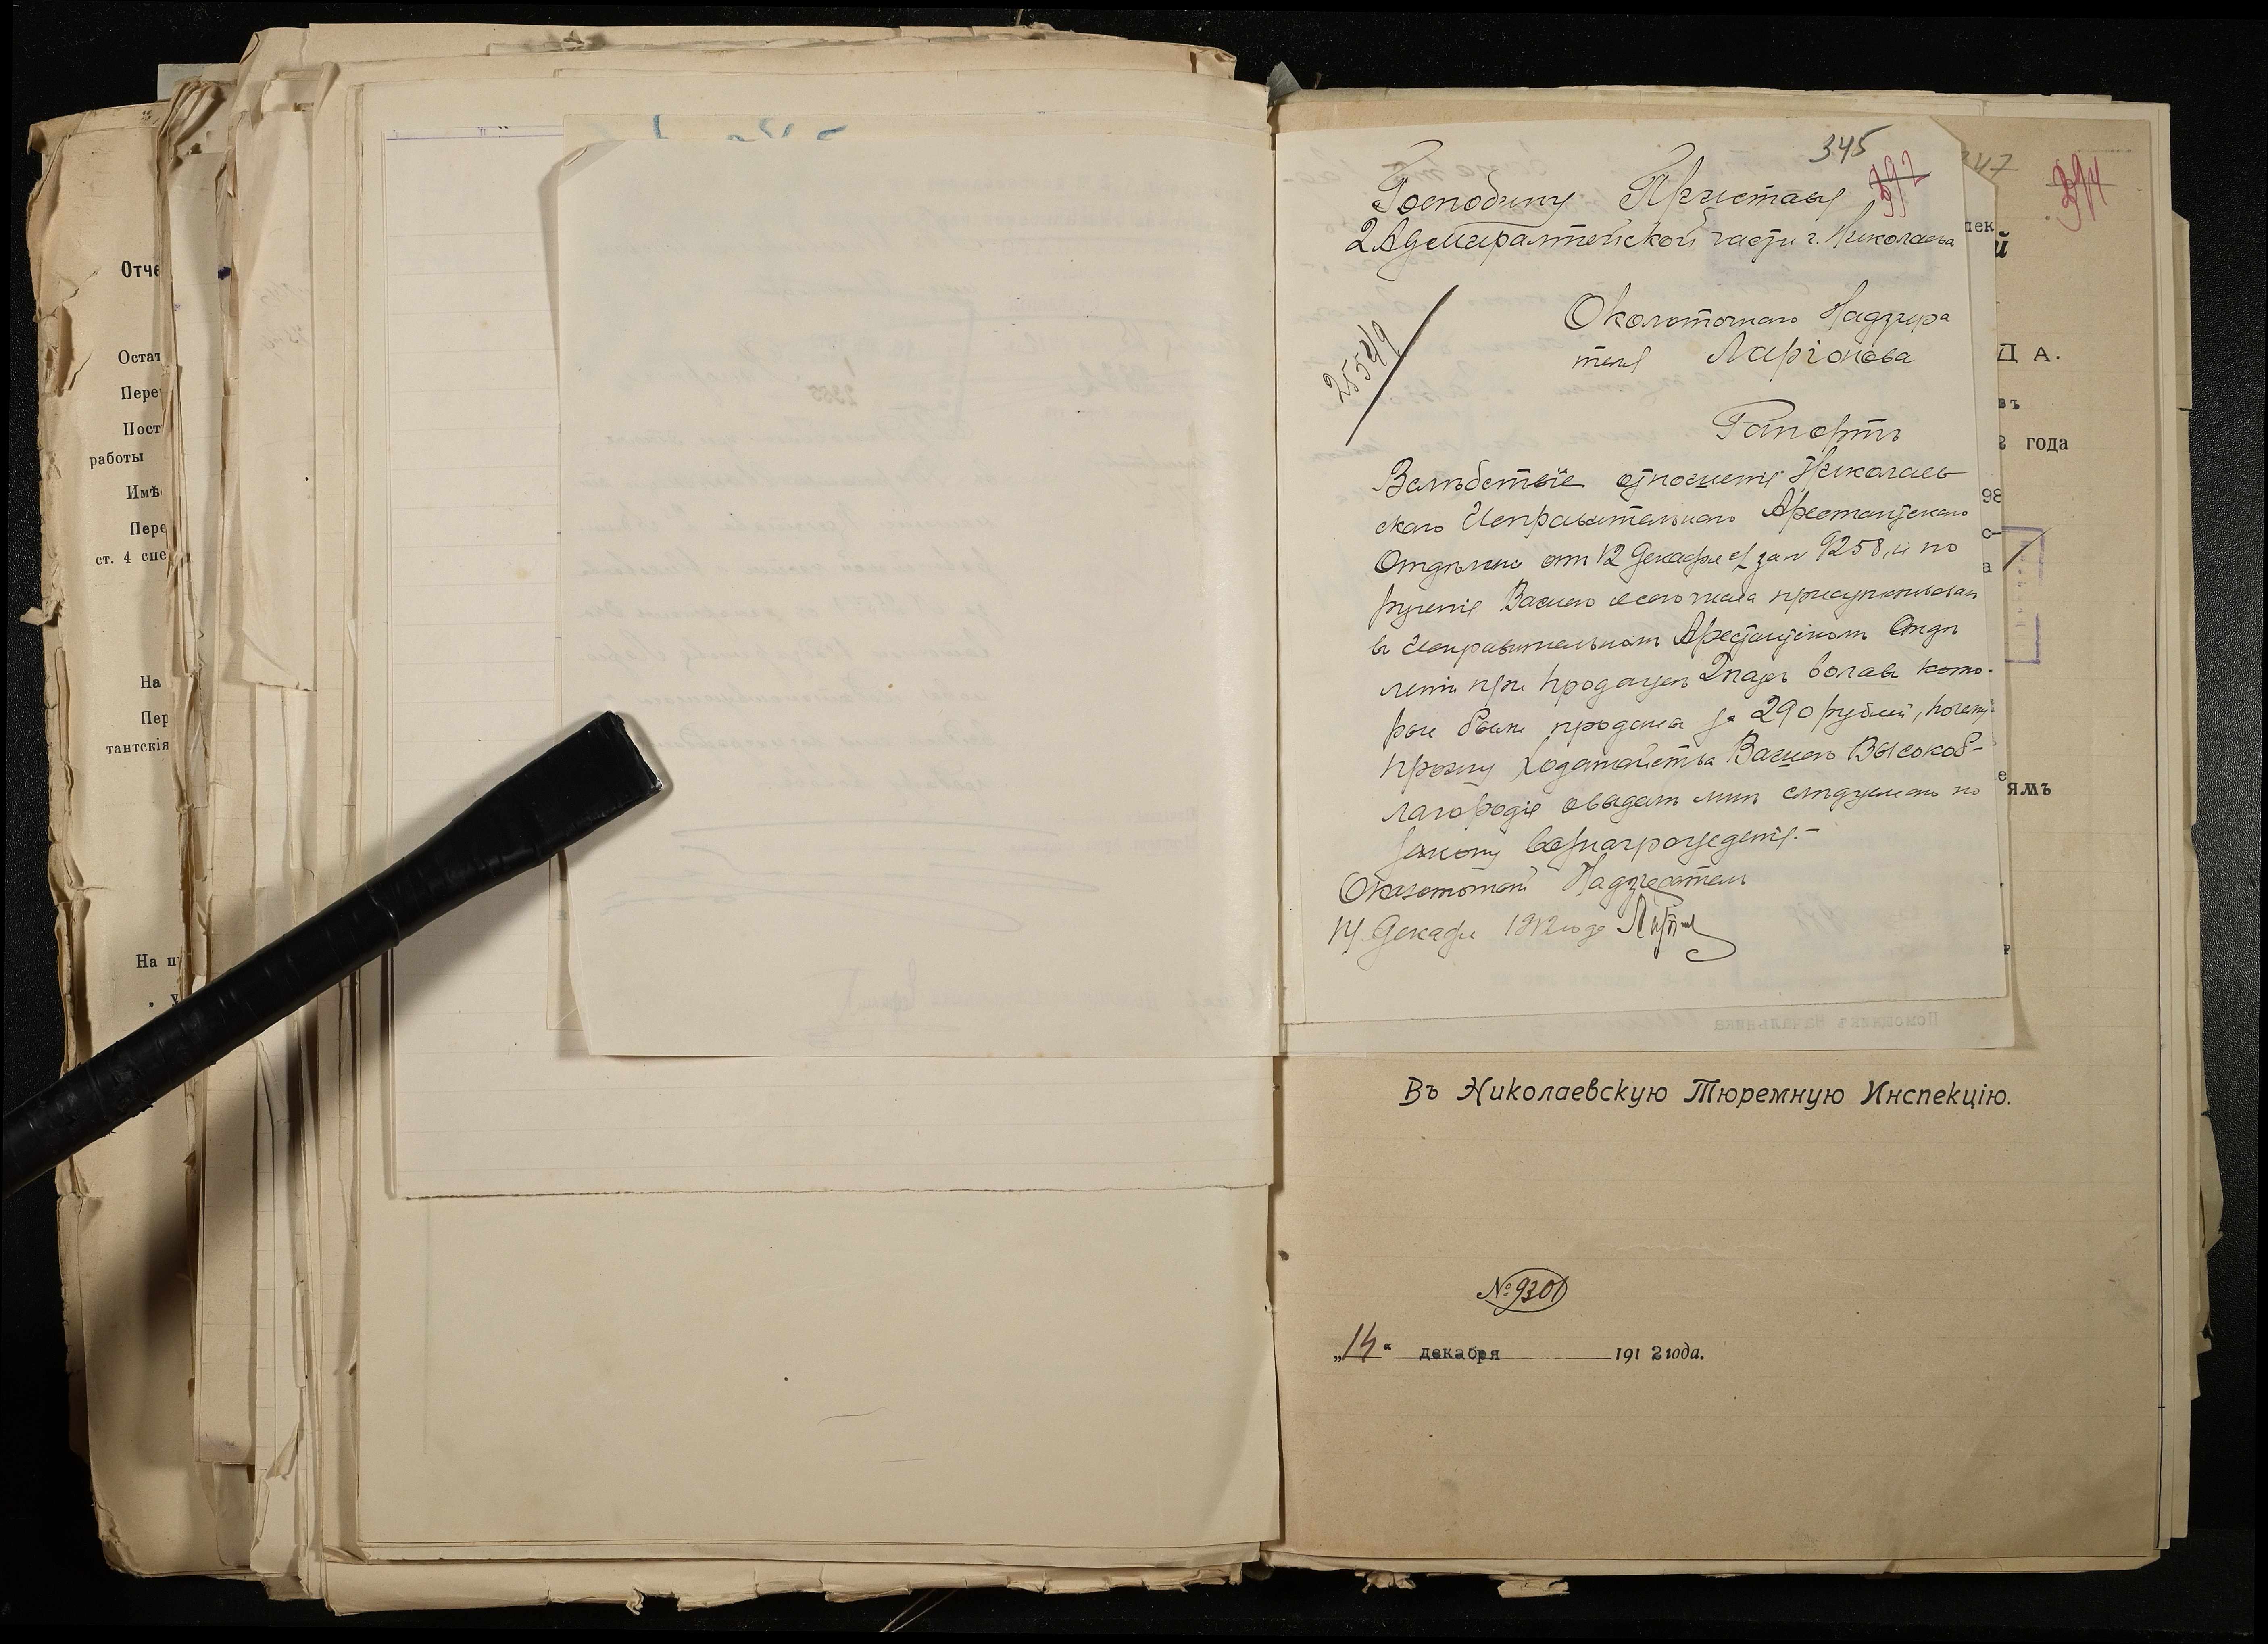 Отче
Остат
Пере
Пост
работы
Имѣ
Пере
ст. 4 спе
На
Пер
тантскія
На п
345
392
347
394
Господину Приставу
2 Адмиралтейской части г. Николаева
Околоточнаго Надзира
теля Ларіонова
25549
Рапортъ
Вслѣдствіе отношенія Николаев
скаго Исправительнаго Арестантскаго
Отдѣленія от 12 Декабря за № 9258, и по
рученія Вашего сего числа присутствовал
в Исправительном Арестантском Отдѣ
леніи при продаже 2 пар волов кото-
рые были проданы за 290 рублей, почему
прошу ходатайства Вашего Высокоб-
лагородія о выдаче мнѣ слѣдуемаго по
закону вознагражденія.-
Околоточный Надзиратель
14 Декабря 1912 года
пек
й
Д А.
въ
2 года
98
с-
а
е
ямъ
Помощникъ Начальника
Въ Николаевскую Тюремную Инспекцію.
№ 9301
„14" декабря 1912 года.